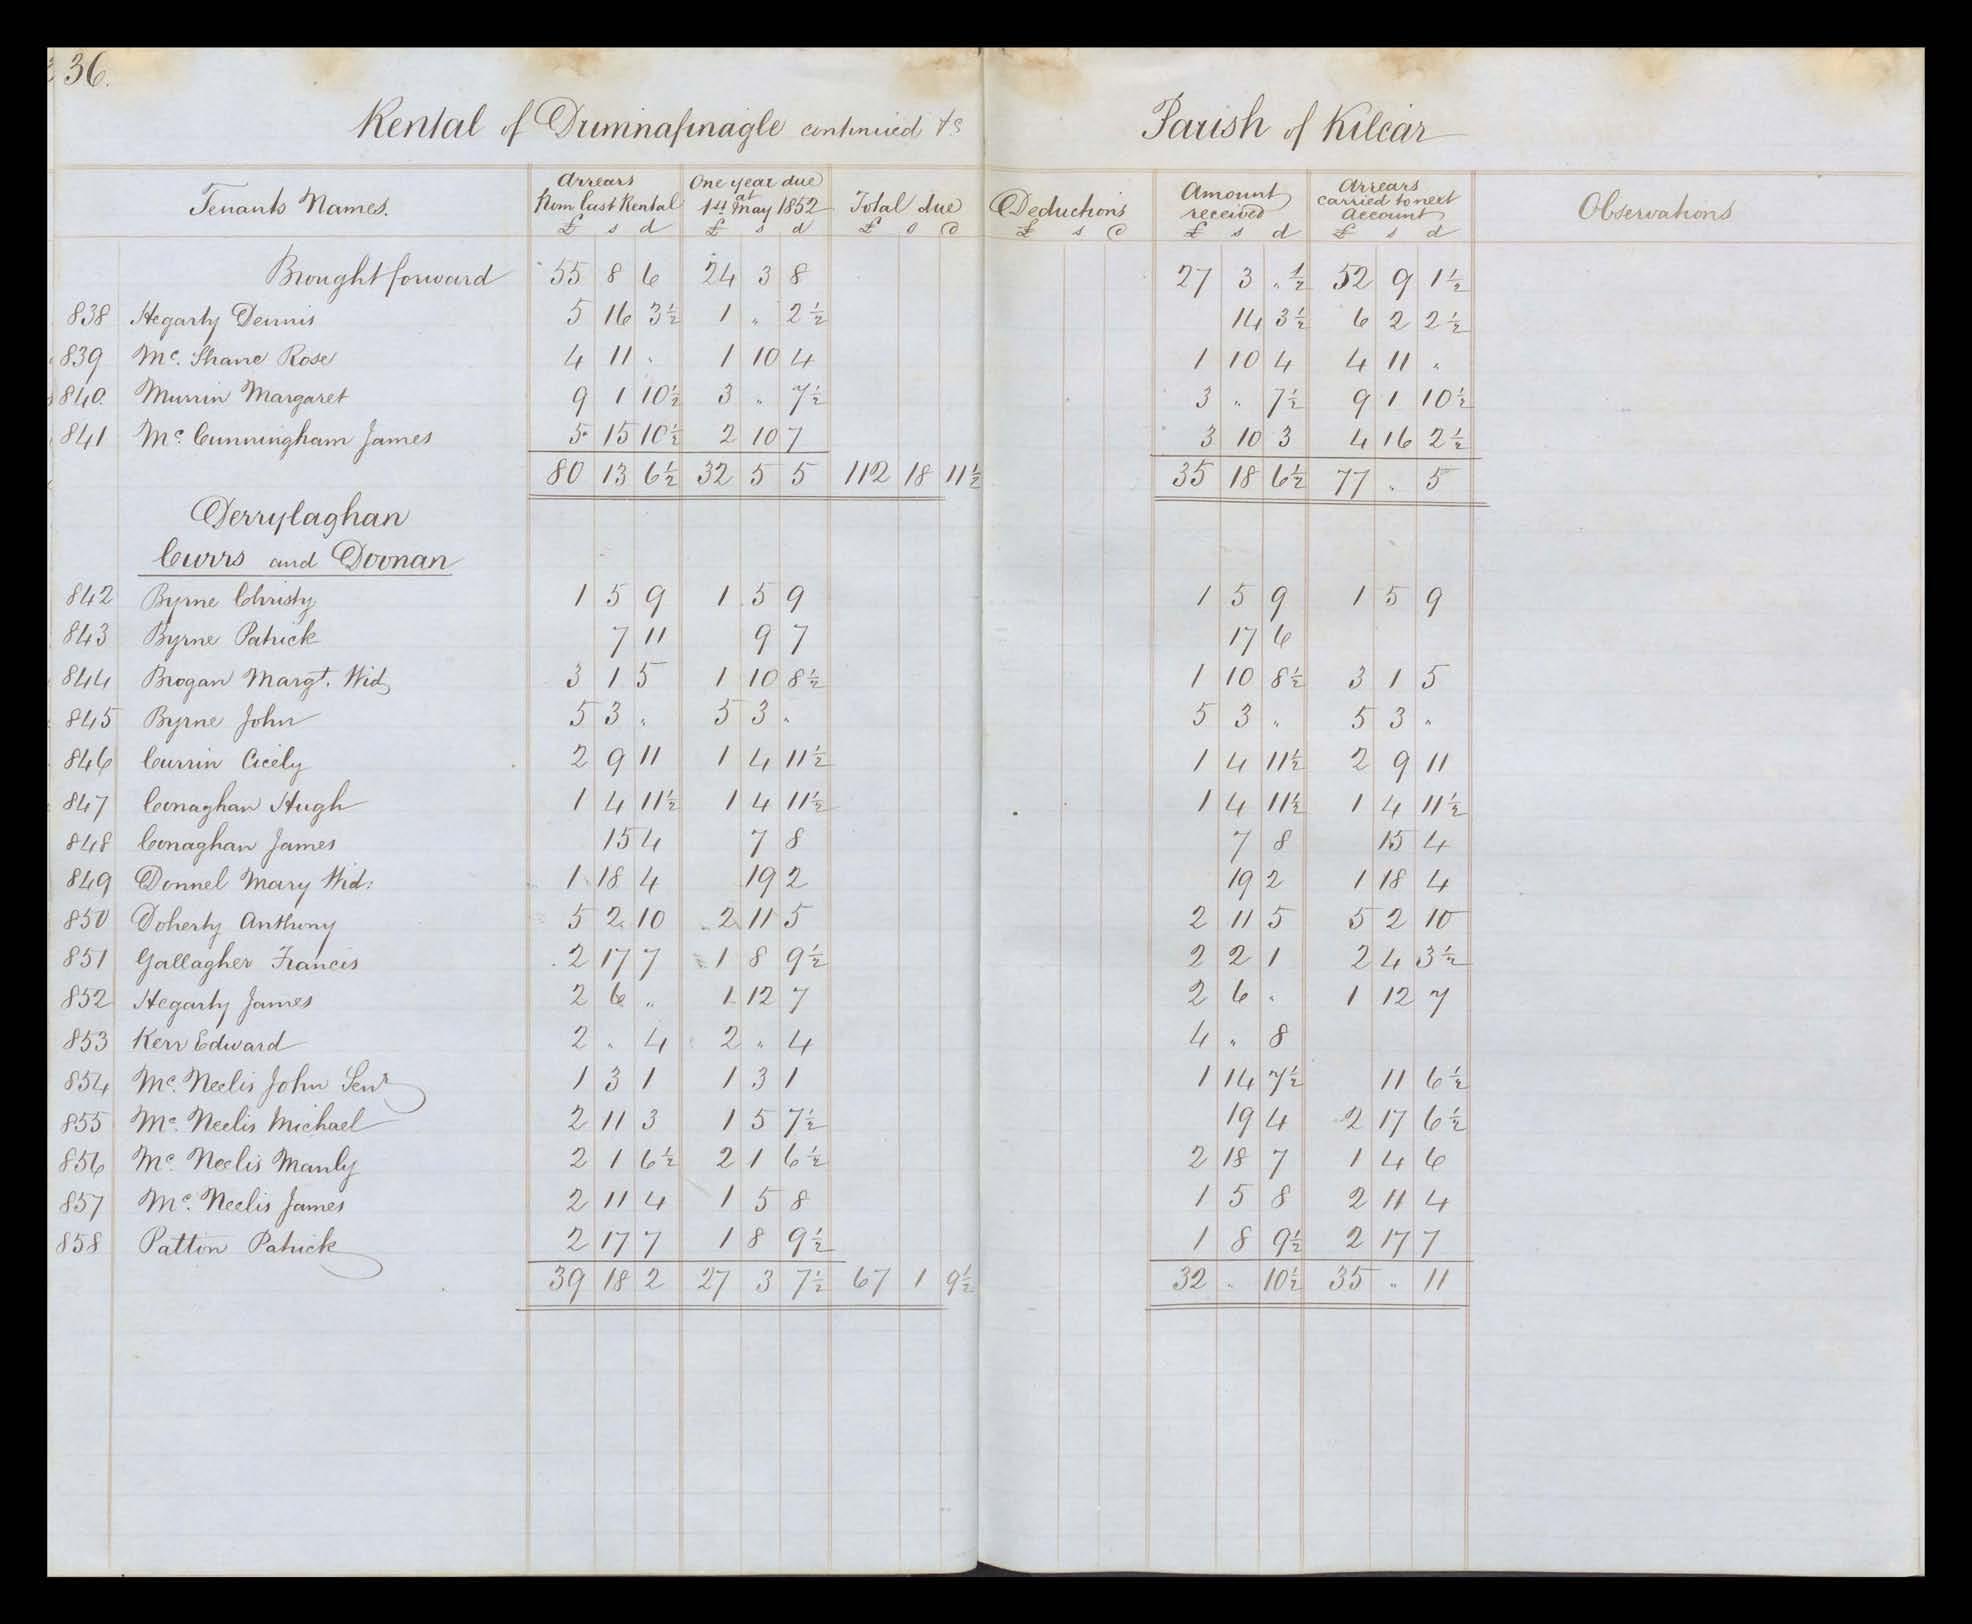 36.
Rental of Drumnafinagle continued &c Parish of Kilcar
Tenants Names. Arrears from last Rental £ s d One year due at 1st May 1852 £ s d Total due £ s d Deductions £ s d Amount received £ s d Arrears carried to next Account £ s d Observations
Brought forward 55 8 6 24 3 8 27 3 „ ½ 52 9 1½
838 Hegarty Dennis 5 16 3½ 1 „ 2½ 14 3½ 6 2 2½
839 Mc. Shane Rose 4 11 „ 1 10 4 1 10 4 4 11 „
840. Murrin Margaret 9 1 10½ 3 „ 7½ 3 „ 7½ 9 1 10½
841 Mc. Cunningham James 5 15 10½ 2 10 7 3 10 3 4 16 2½
80 13 6½ 32 5 5 112 18 11½ 35 18 6½ 77 „ 5
Derrylaghan
Currs and Doonan
842 Byrne Christy 1 5 9 1 5 9 1 5 9 1 5 9
843 Byrne Patrick 7 11 9 7 17 6
844 Brogan Margt. Wid 3 1 5 1 10 8½ 1 10 8½ 3 1 5
845 Byrne John 5 3 „ 5 3 „ 5 3 „ 5 3 „
846 Currin Cicely 2 9 11 1 4 11½ 1 4 11½ 2 9 11
847 Conaghan Hugh 1 4 11½ 1 4 11½ 1 4 11½ 1 4 11½
848 Conaghan James 15 4 7 8 7 8 15 4
849 Donnel Mary Wid: 1 18 4 19 2 19 2 1 18 4
850 Doherty Anthony 5 2 10 2 11 5 2 11 5 5 2 10
851 Gallagher Francis 2 17 7 1 8 9½ 2 2 1 2 4 3½
852 Hegarty James 2 6 „ 1 12 7 2 6 „ 1 12 7
853 Kerr Edward 2 „ 4 2 „ 4 4 „ 8
854 Mc. Neelis John Senr 1 3 1 1 3 1 1 14 7½ 11 6½
855 Mc. Neelis Michael 2 11 3 1 5 7½ 19 4 2 17 6½
856 Mc. Neelis Manly 2 1 6½ 2 1 6½ 2 18 7 1 4 6
857 Mc. Neelis James 2 11 4 1 5 8 1 5 8 2 11 4
858 Patton Patrick 2 17 7 1 8 9½ 1 8 9½ 2 17 7
39 18 2 27 3 7½ 67 1 9½ 32 „ 10½ 35 „ 11